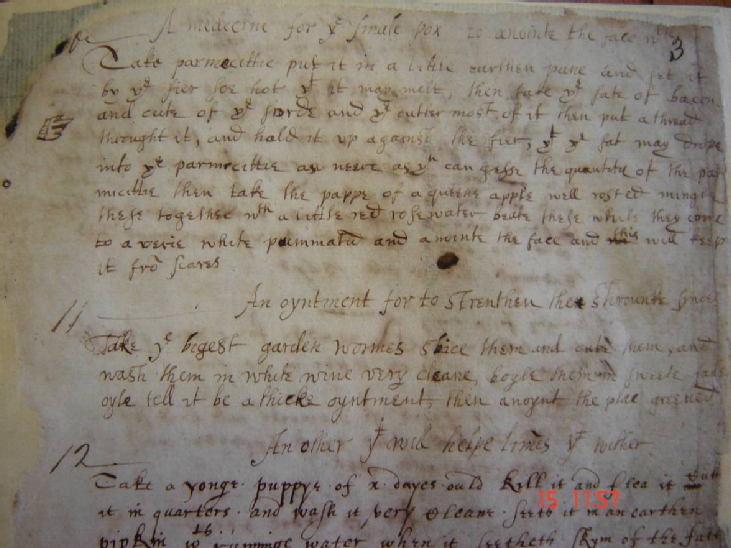 A medicine for yᵉ smale pox to anointe the face wᵗʰ
3
Take parmocittie put it in a litle earthen pane and set it
by yᵉ fier soe hot yᵗ it may melt, then take yᵉ fate of bacon
and cute of yᵉ sorde and yᵉ outter most of it then put a thread
throught it, and hold it up against the fier, yᵗ yᵉ fat may drope
into yᵉ parmocittie as neere as yᵘ can gesse the quantity of the par
micittie then take the pappe of a queene apple well rosted mingle
these together wᵗʰ a little red rosewater beate these while they come
to a verie white pummatu and anointe the face and this will keep
it frō scares
11
An oyntment for to strenthen the shrounke
Take yᵉ bigest garden wormes slice them and cute them, and
wash them in white wine very cleane, boyle them in
oyle tell it be a thicke oyntment, then anoynt the plac greeved
12
An other yᵗ will helpe limes yᵗ wither
Take a yonge puppye of x dayes ould kill it and flea it
it in quarters and wash it very cleane seeth it in an earthen
pipkin running water when it seetheth skym of the fatt
15 11:57